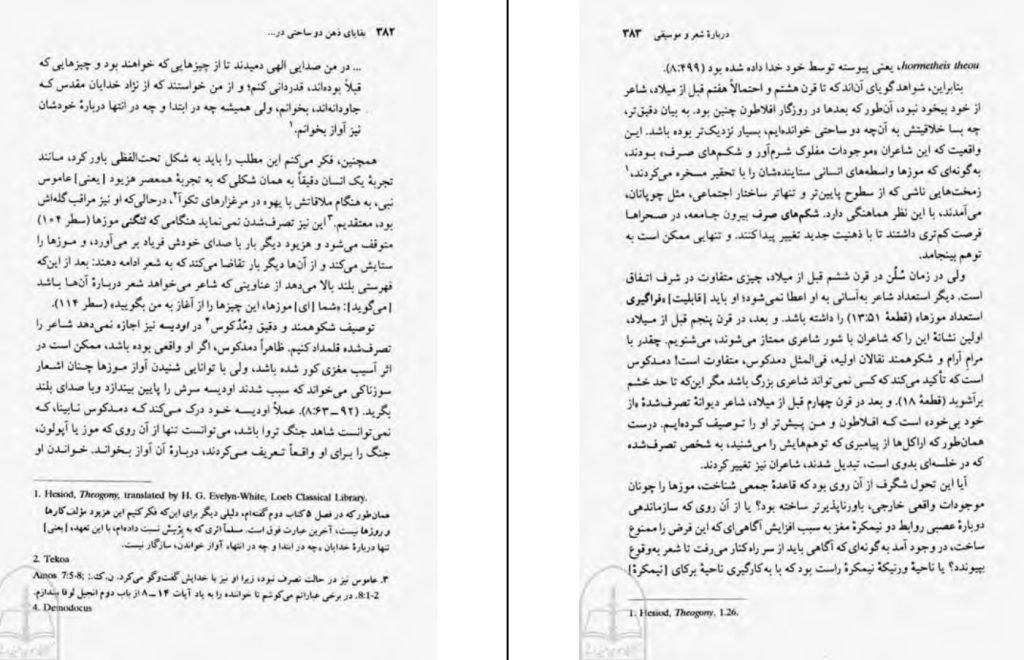 ۳۸۲ بقایای ذهن دو ساحتی در...
... در من صدایی الهی دمیدند تا از چیزهایی که خواهند بود و چیزهایی که
قبلاً بوده‌اند، قدردانی کنم؛ و از من خواستند که از نژاد خدایان مقدس که
جاودانه‌اند، بخوانم، ولی همیشه چه در ابتدا و چه در انتها دربارهٔ خودشان
نیز آواز بخوانم.۱
همچنین، فکر می‌کنم این مطلب را باید به شکل تحت‌اللفظی باور کرد، مانند
تجربهٔ یک انسان دقیقاً به همان شکلی که به تجربهٔ همعصر هزیود [یعنی] عاموس
نبی، به هنگام ملاقاتش با یهوه در مرغزارهای تکوآ۲، درحالی‌که او نیز مراقب گله‌اش
بود، معتقدیم.۳ این نیز تصرف‌شدن نمی‌نماید هنگامی که تئگنی موزها (سطر ۱۰۴)
متوقف می‌شود و هزیود دیگر بار با صدای خودش فریاد بر می‌آورد، و موزها را
ستایش می‌کند و از آن‌ها دیگر بار تقاضا می‌کند که به شعر ادامه دهند: بعد از این‌که
فهرستی بلند بالا می‌دهد از عناوینی که شاعر می‌خواهد شعر دربارهٔ آن‌ها باشد
[می‌گوید]: «شما [ای] موزها، این چیزها را از آغاز به من بگویید» (سطر ۱۱۴).
توصیف شکوهمند و دقیق دِمُدُکوس۴ در اودیسه نیز اجازه نمی‌دهد شاعر را
تصرف‌شده قلمداد کنیم. ظاهراً دمدکوس، اگر او واقعی بوده باشد، ممکن است در
اثر آسیب مغزی کور شده باشد، ولی با توانایی شنیدن آواز موزها چنان اشعار
سوزناکی می‌خواند که سبب شدند اودیسه سرش را پایین بیندازد و با صدای بلند
بگرید. (۹۲ – ۸:۶۳). عملاً اودیسه خود درک می‌کند که دمدکوس نابینا، که
نمی‌توانست شاهد جنگ تروا باشد، می‌توانست تنها از آن روی که موز یا آپولون،
جنگ را برای او واقعاً تعریف می‌کردند، دربارهٔ آن آواز بخواند. خواندن او
1. Hesiod, Theogony, translated by H. G. Evelyn-White, Loeb Classical Library.
همان‌طور که در فصل ۵ کتاب دوم گفته‌ام، دلیلی دیگر برای این‌که فکر کنیم این هزیود مؤلف کارها
و روزها نیست، آخرین عبارت فوق است. مسلماً اثری که به پِرْسِش نسبت داده‌ام، با این تعهد، [یعنی]
تنها دربارهٔ خدایان «چه در ابتدا و چه در انتها» آواز خواندن، سازگار نیست.
2. Tekoa
۳. عاموس نیز در حالت تصرف نبود، زیرا او نیز با خدایش گفت‌وگو می‌کرد. ن.ک.: Amos 7:5-8;
8:1-2. در برخی عباراتم می‌کوشم تا خواننده را به یاد آیات ۱۴ – ۸ از باب دوم انجیل لوقا بیندازم.
4. Demodocus
دربارهٔ شعر و موسیقی ۳۸۳
hormetheis theou، یعنی پیوسته توسط خود خدا داده شده بود (۸:۴۹۹).
بنابراین، شواهد گویای آن‌اند که تا قرن هشتم و احتمالاً هفتم قبل از میلاد، شاعر
از خود بیخود نبود، آن‌طور که بعدها در روزگار افلاطون چنین بود. به بیان دقیق‌تر،
چه بسا خلاقیتش به آن‌چه دو ساحتی خوانده‌ایم، بسیار نزدیک‌تر بوده باشد. این
واقعیت که این شاعران «موجودات مفلوک شرم‌آور و شکم‌های صرف» بودند،
به‌گونه‌ای که موزها واسطه‌های انسانی ستاینده‌شان را با تحقیر مسخره می‌کردند،۱
زمخت‌هایی ناشی که از سطوح پایین‌تر و تنهاتر ساختار اجتماعی، مثل چوپانان،
می‌آمدند، با این نظر هماهنگی دارد. شکم‌های صرف بیرون جامعه، در صحراها
فرصت کم‌تری داشتند تا با ذهنیت جدید تغییر پیدا کنند. و تنهایی ممکن است به
توهم بینجامد.
ولی در زمان سُلُن در قرن ششم قبل از میلاد، چیزی متفاوت در شرف اتفاق
است. دیگر استعداد شاعر به‌آسانی به او اعطا نمی‌شود؛ او باید [قابلیت] «فراگیری
استعداد موزها» (قطعهٔ ۱۳:۵۱) را داشته باشد. و بعد، در قرن پنجم قبل از میلاد،
اولین نشانهٔ این را که شاعران با شور شاعری ممتاز می‌شوند، می‌شنویم. چقدر با
مرام آرام و شکوهمند نقالان اولیه، فی‌المثل دمدکوس، متفاوت است! دمدکوس
است که تأکید می‌کند که کسی نمی‌تواند شاعری بزرگ باشد مگر این‌که تا حد خشم
برآشوبد (قطعهٔ ۱۸). و بعد در قرن چهارم قبل از میلاد، شاعر دیوانهٔ تصرف‌شدهٔ «از
خود بی‌خود» است که افلاطون و من پیش‌تر او را توصیف کرده‌ایم. درست
همان‌طور که اراکل‌ها از پیامبری که توهم‌هایش را می‌شنید، به شخص تصرف‌شده
که در خلسه‌ای بدوی است، تبدیل شدند، شاعران نیز تغییر کردند.
آیا این تحول شگرف از آن روی بود که قاعدهٔ جمعی شناخت، موزها را چونان
موجودات واقعی خارجی، باورناپذیرتر ساخته بود؟ یا از آن روی که سازماندهی
دوبارهٔ عصبی روابط دو نیمکرهٔ مغز به سبب افزایش آگاهی‌ای که این قرض را ممنوع
ساخت، در وجود آمد به گونه‌ای که آگاهی باید از سر راه کنار می‌رفت تا شعر به‌وقوع
بپیوندد؟ یا ناحیهٔ ورنیکهٔ نیمکرهٔ راست بود که با به‌کارگیری ناحیهٔ برکای [نیمکرهٔ]
1. Hesiod, Theogony, 1.26.